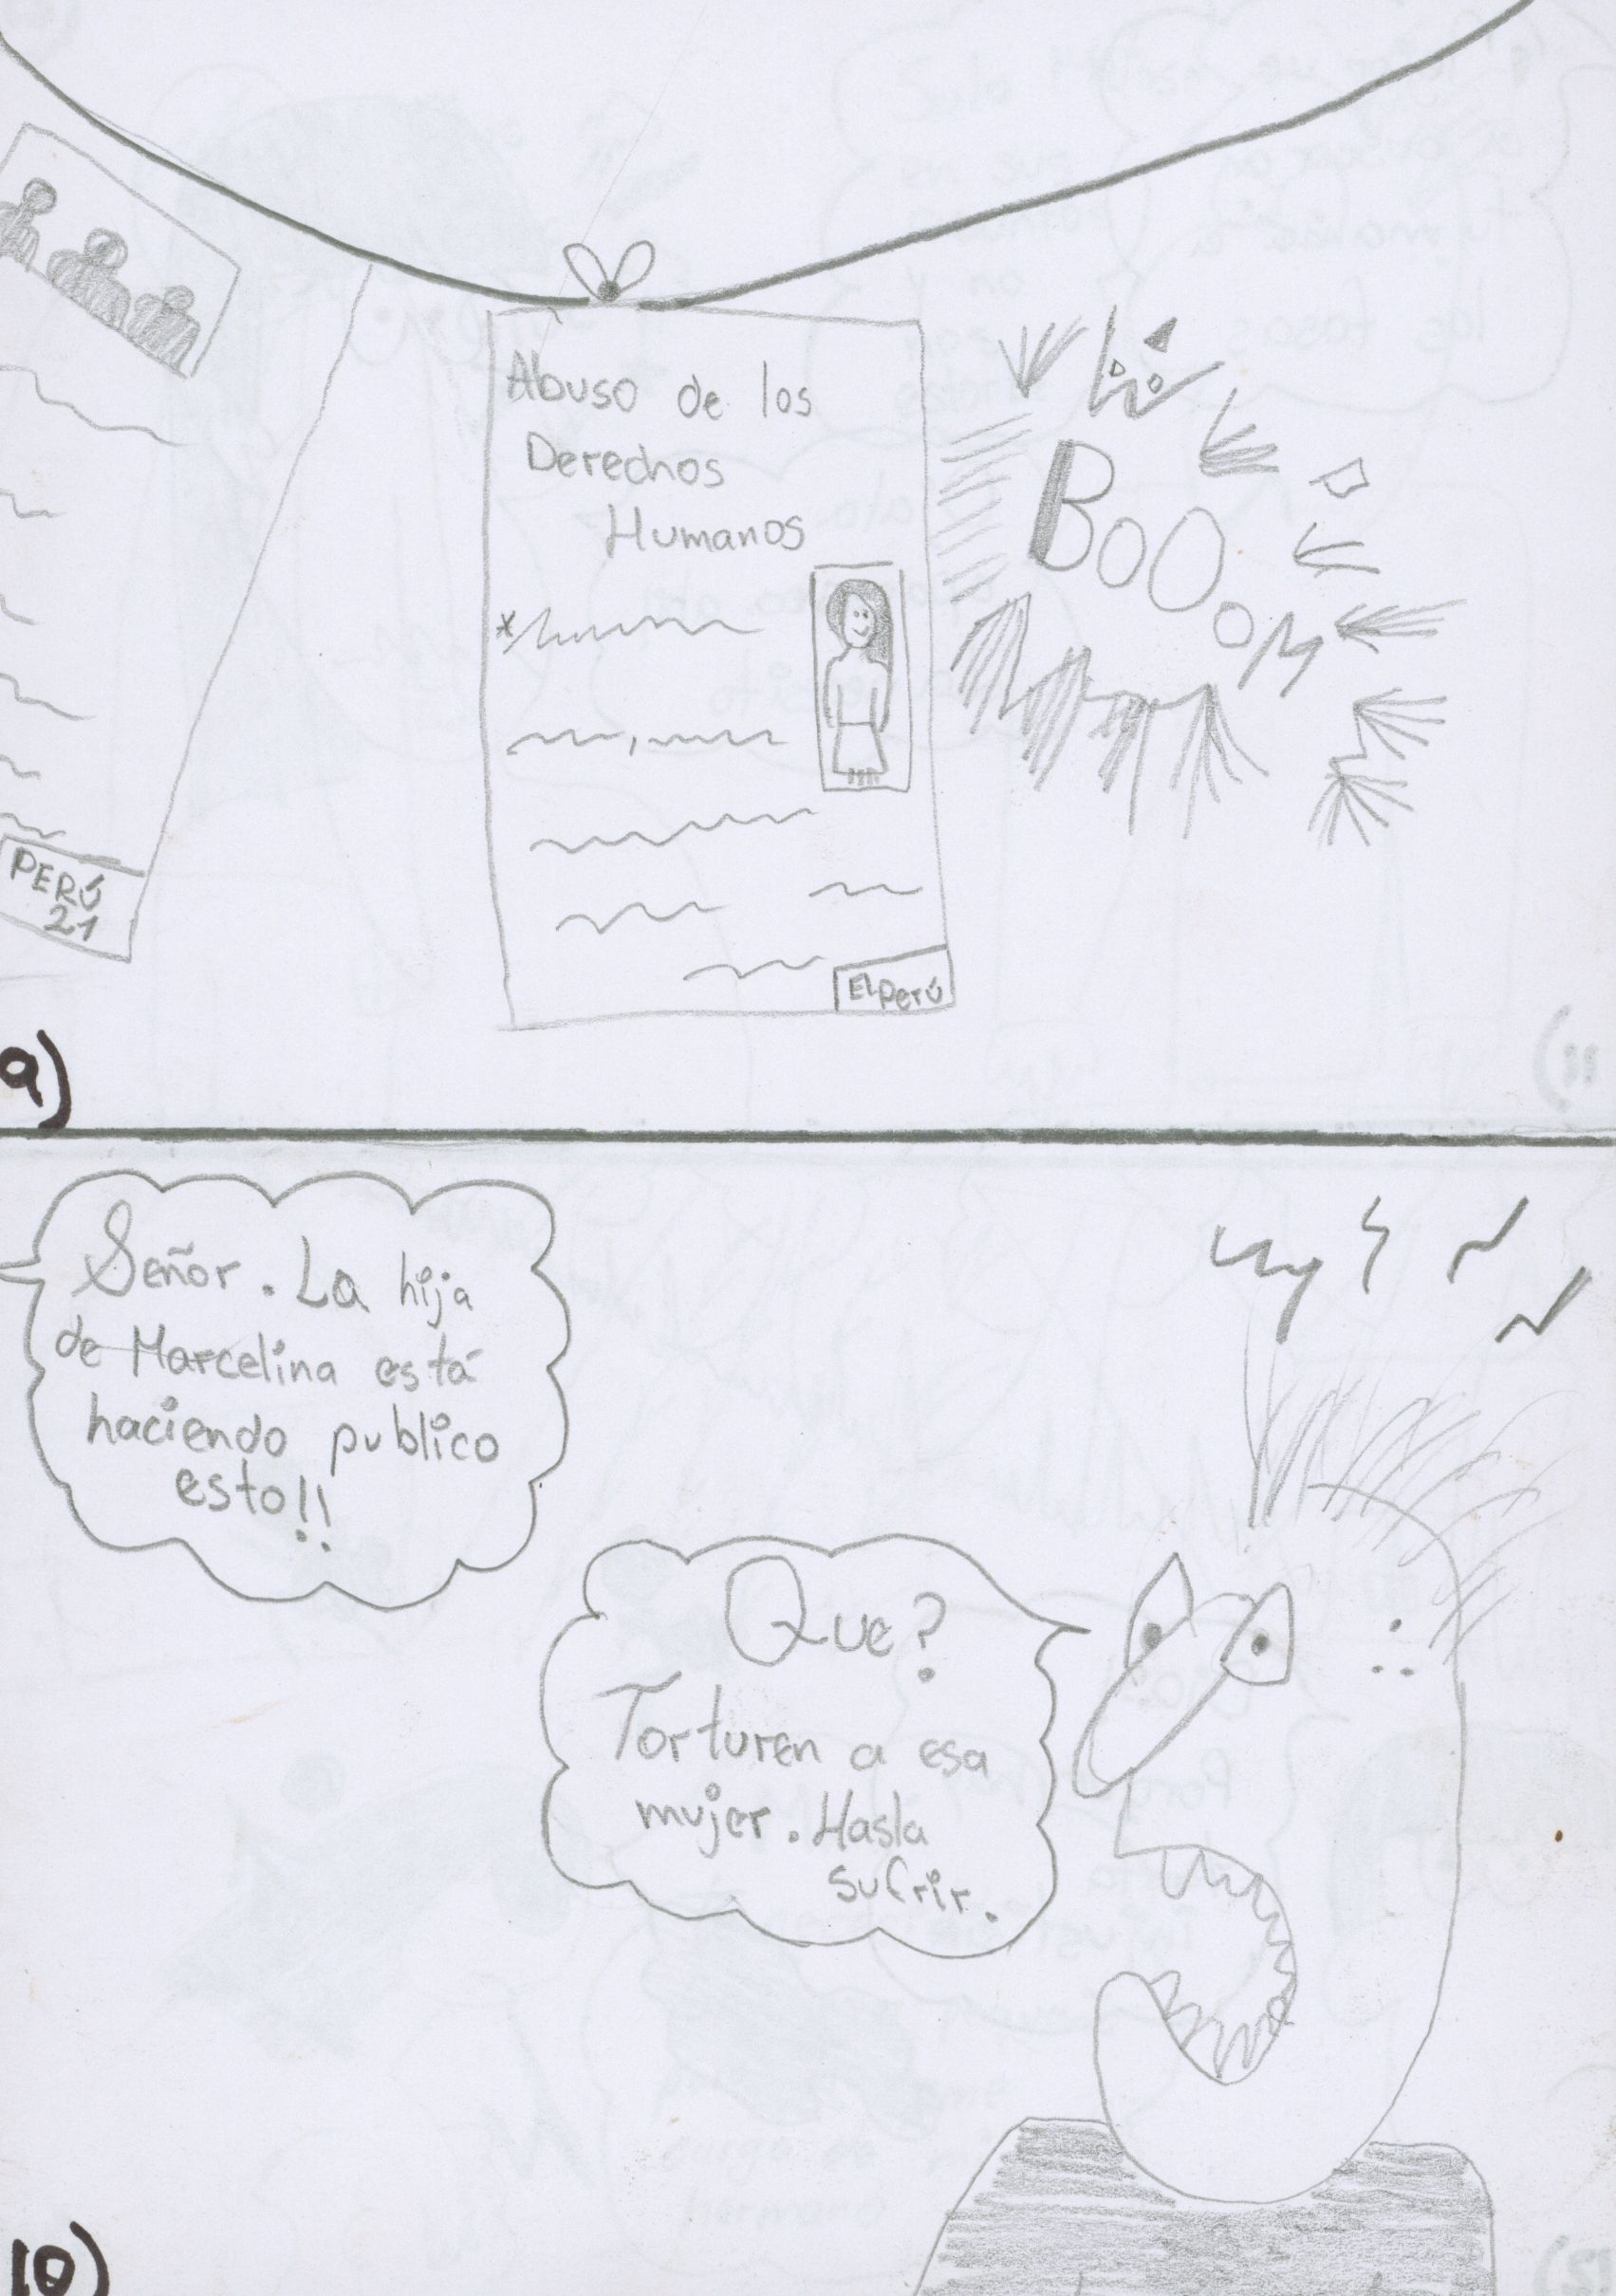 Abuso de los
Derechos
Humanos
BOOOM
PERÚ
21
El Perú
9)
Señor. La hija
de Marcelina está
haciendo publico
esto!!
Que?
Torturen a esa
mujer. Hasla
sufrir.
10)